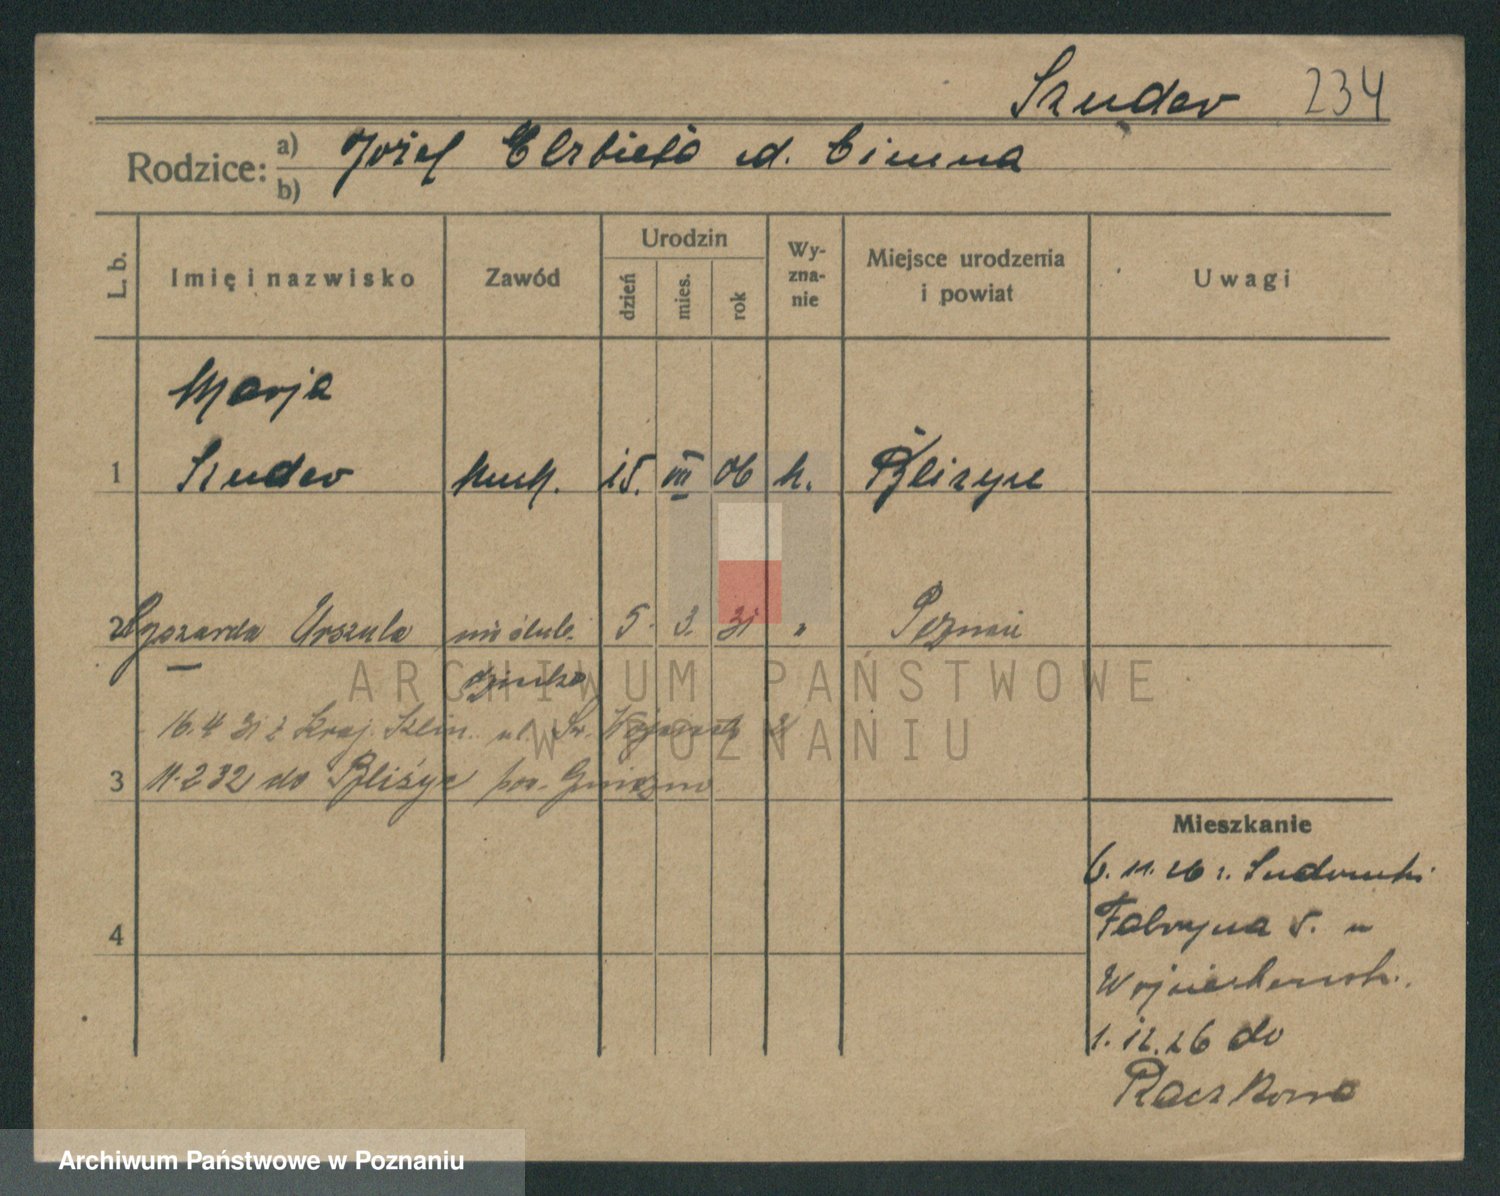 Szuder 234
Rodzice: a) Józef Elzbieta d. Cimna
b)
L. b.
Imię i nazwisko
Zawód
Urodzin
dzień
mies.
rok
Wy-
zna-
nie
Miejsce urodzenia
i powiat
Uwagi
Marja
1 Szuder kuch. 15. III 06 k.
2 Ryszarda Urszula nieślub. 5. 3. 31 " Poznań
16.4 31 z Kraj. Klin. ul. Św.
3 11.2 32 do pow. Gniezno
4
Mieszkanie
6. 11. 26 z.
Fabryczna 5. u
1. 12. 26 do
Raczkowa
ARCHIWUM PAŃSTWOWE
W POZNANIU
Archiwum Państwowe w Poznaniu